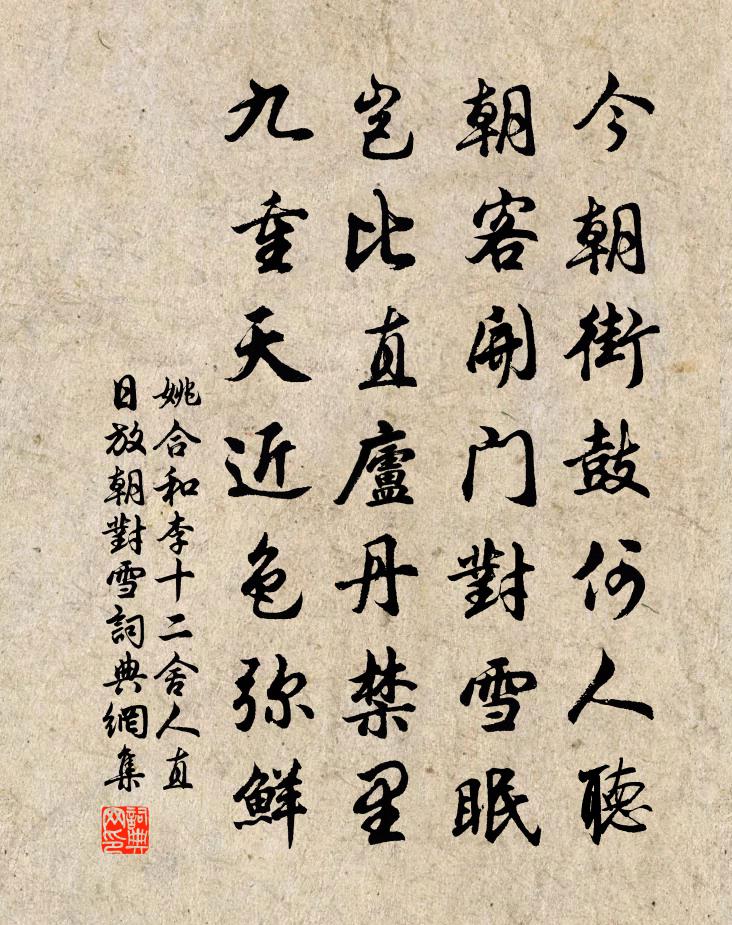 今朝街鼓何人聽
朝客開门對雪眠
岂比直廬丹禁里
九重天近色弥鮮
姚合和李十二舍人直
日放朝對雪詞典網集
詞典
网印